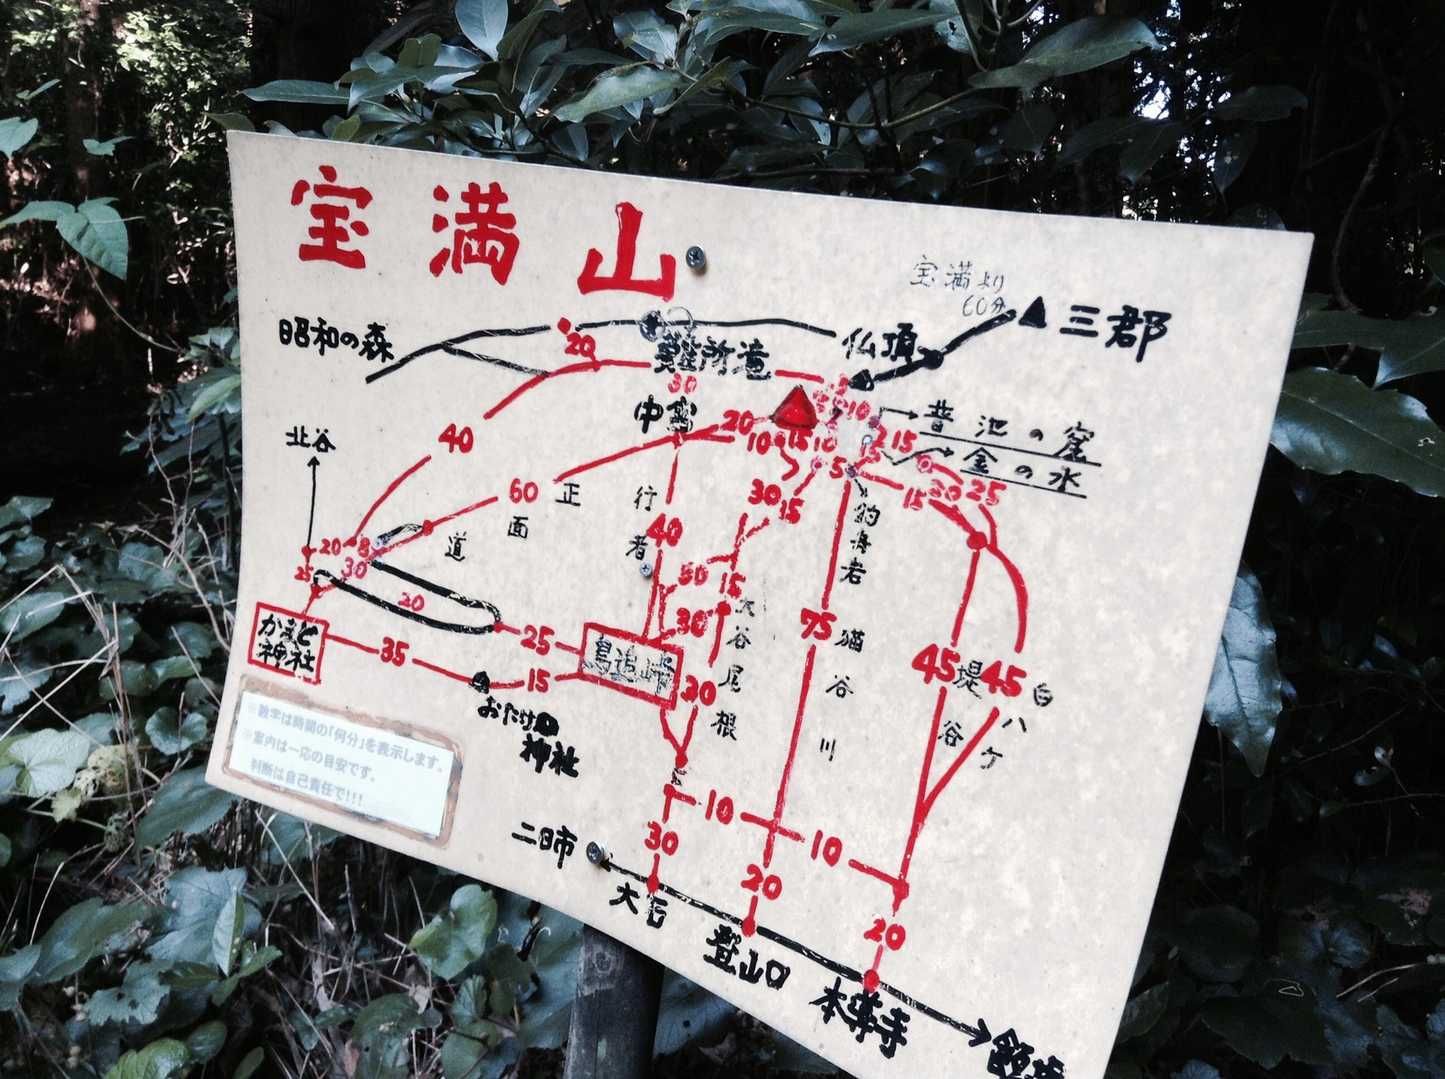 宝満山
宝満より
60分
三郡
昭和の森
仏頂
20
難所滝
30
中宮
20
10
15
10
10
15
15
普池の窟
金の水
北谷
40
60
正面道
行者
40
30
15
5
15
20
25
釣舟岩
20
8
30
25
20
50
15
30
大谷尾根
75
猫谷川
45
堤谷
45
白ハケ
かまど
神社
35
25
15
鳥追峠
20
おたけ
神社
※数字は時間の「何分」を表示します。
※案内は一応の目安です。
判断は自己責任で!!!
10
10
30
20
20
二日市
大石
登山口
本導寺